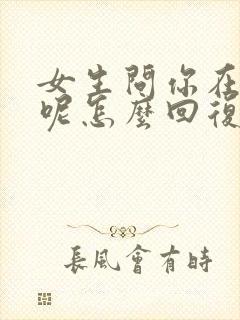 女生問你在
呢怎麼回復
長風會有時